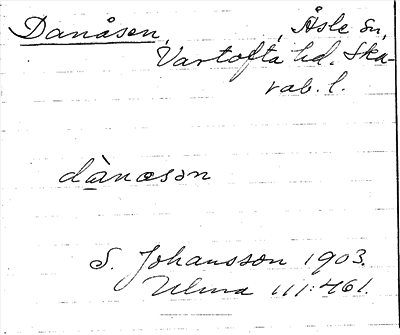 Danåsen, , Åsle sn,
Vartofta hd. Ska-
rab. l.
dànɑsən
S. Johansson 1903.
Ulma 111:461.